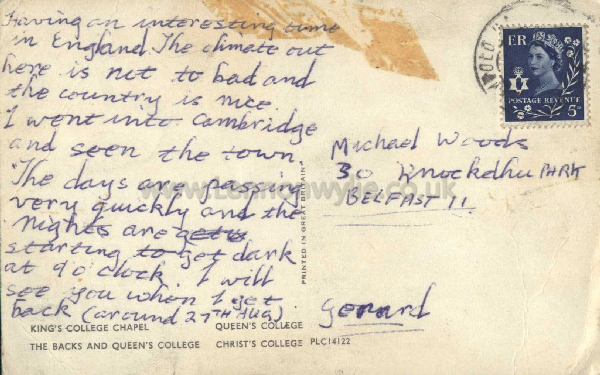 Having an interesting time
in England. The climate out
here is not to bad and
the country is nice.
I went into Cambridge
and seen the town
The days are passing
very quickly and the
nights are gets
starting to get dark
at 9 o'clock. I will
see you when I get
back (around 27TH Aug).
Gerard
Michael Woods
30 Knockdhu PARK
BELFAST 11
ER
POSTAGE REVENUE
5D
PRINTED IN GREAT BRITAIN
KING'S COLLEGE CHAPEL QUEEN'S COLLEGE
THE BACKS AND QUEEN'S COLLEGE CHRIST'S COLLEGE PLC14122